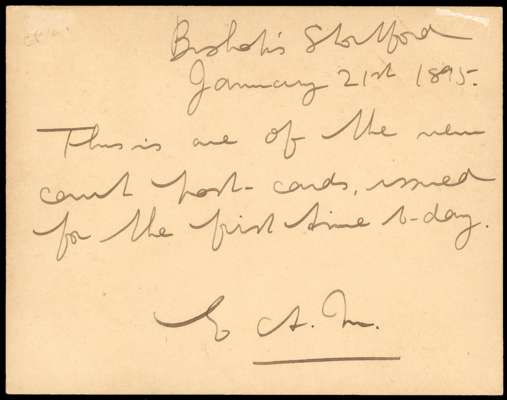 Bishop's Stortford
January 21st 1895.
This is one of the new
court post-cards, issued
for the first time to-day.
E A. M.